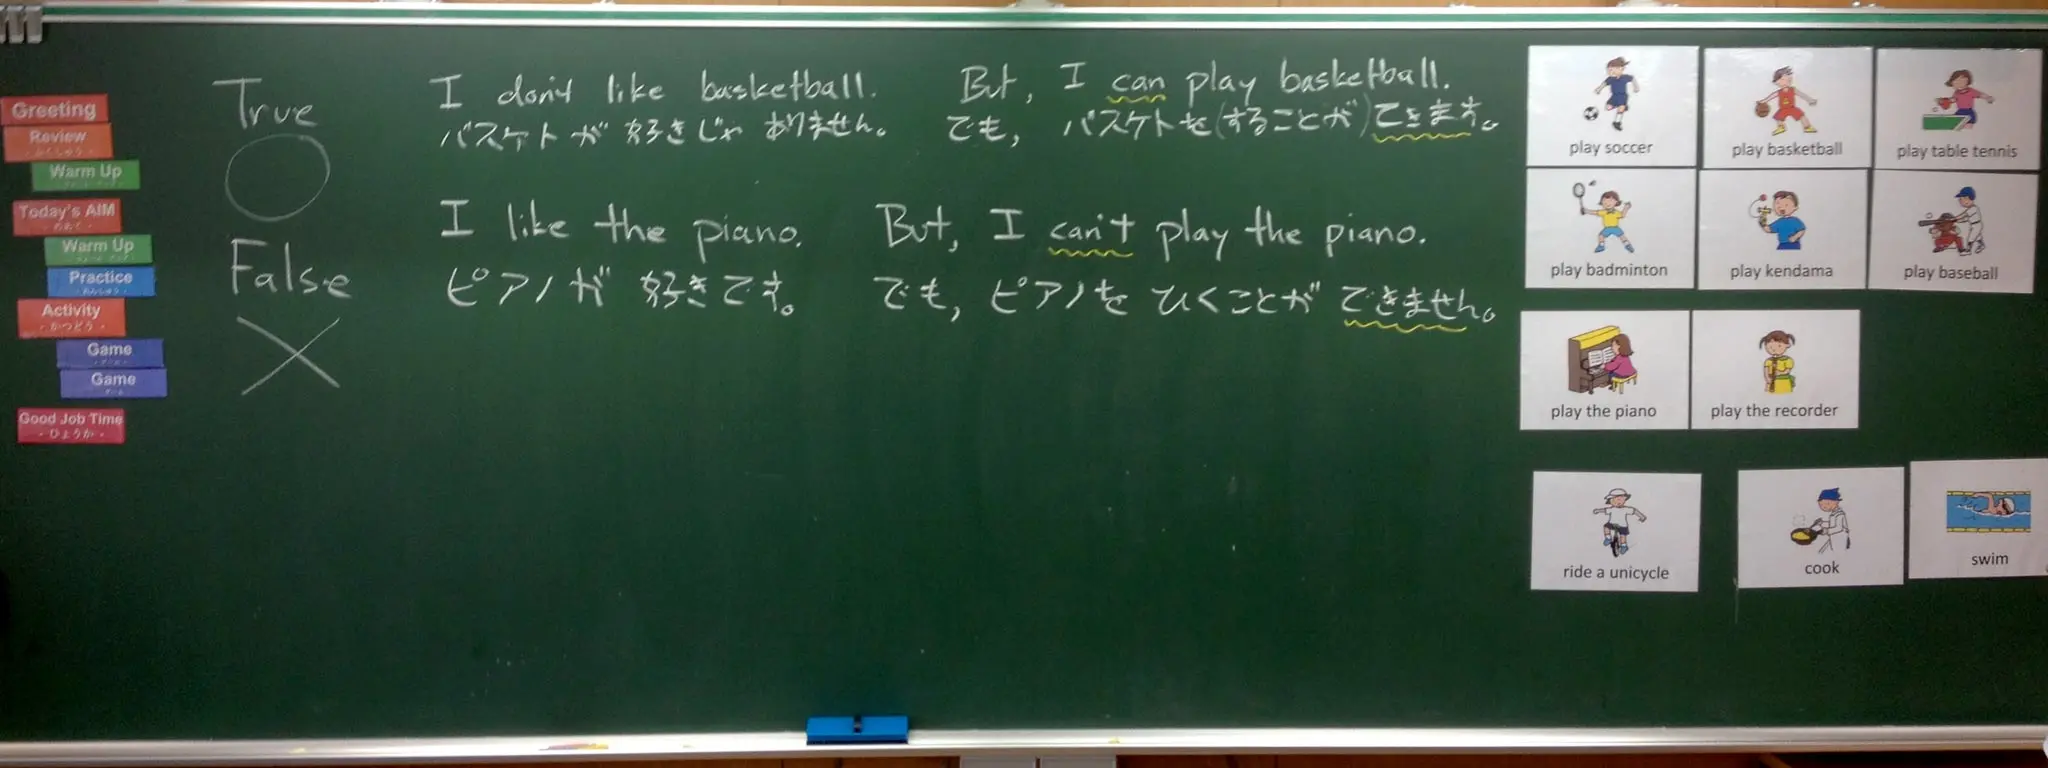 Greeting
Review
Warm Up
Today's AIM
- めあて -
Warm Up
Practice
- れんしゅう -
Activity
- かつどう -
Game
Game
Good Job Time
- ひょうか -
True
False
I don't like basketball. But, I can play basketball.
バスケトが好きじゃありません。 でも, バスケトを(することが)できます。
I like the piano. But, I can't play the piano.
ピアノが好きです。 でも, ピアノをひくことができません。
play soccer
play basketball
play table tennis
play badminton
play kendama
play baseball
play the piano
play the recorder
ride a unicycle
cook
swim